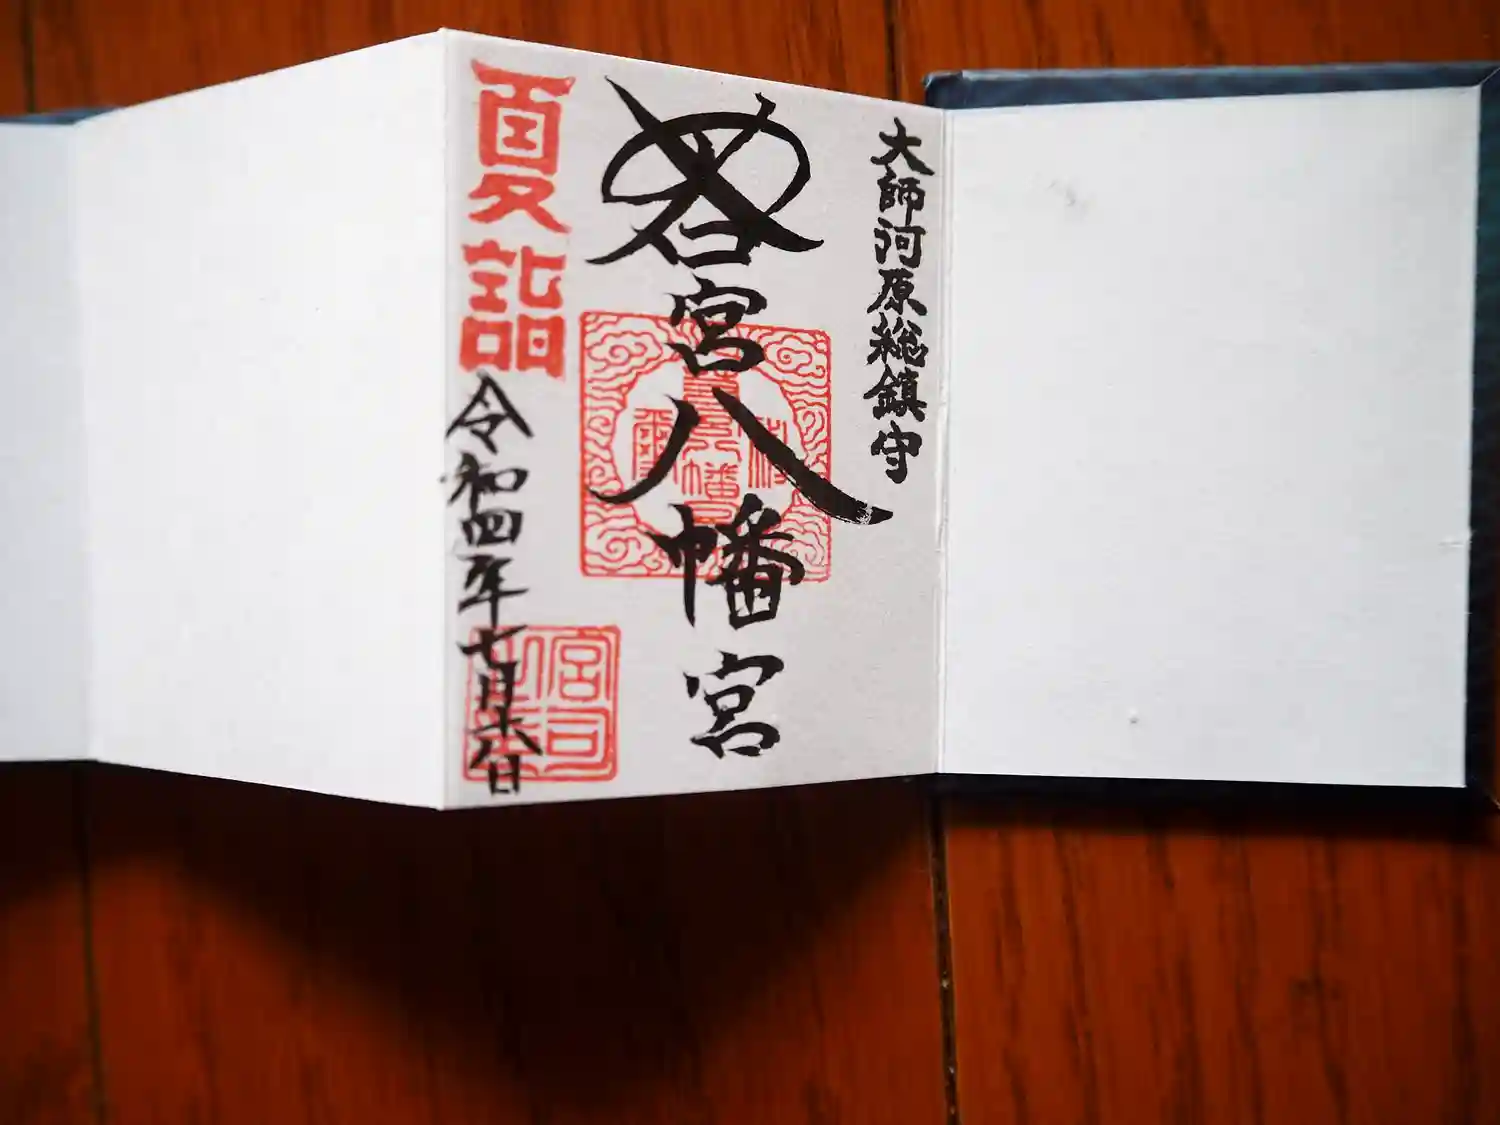 大師河原総鎮守
若宮八幡宮
夏詣
令和四年七月十八日
宮司